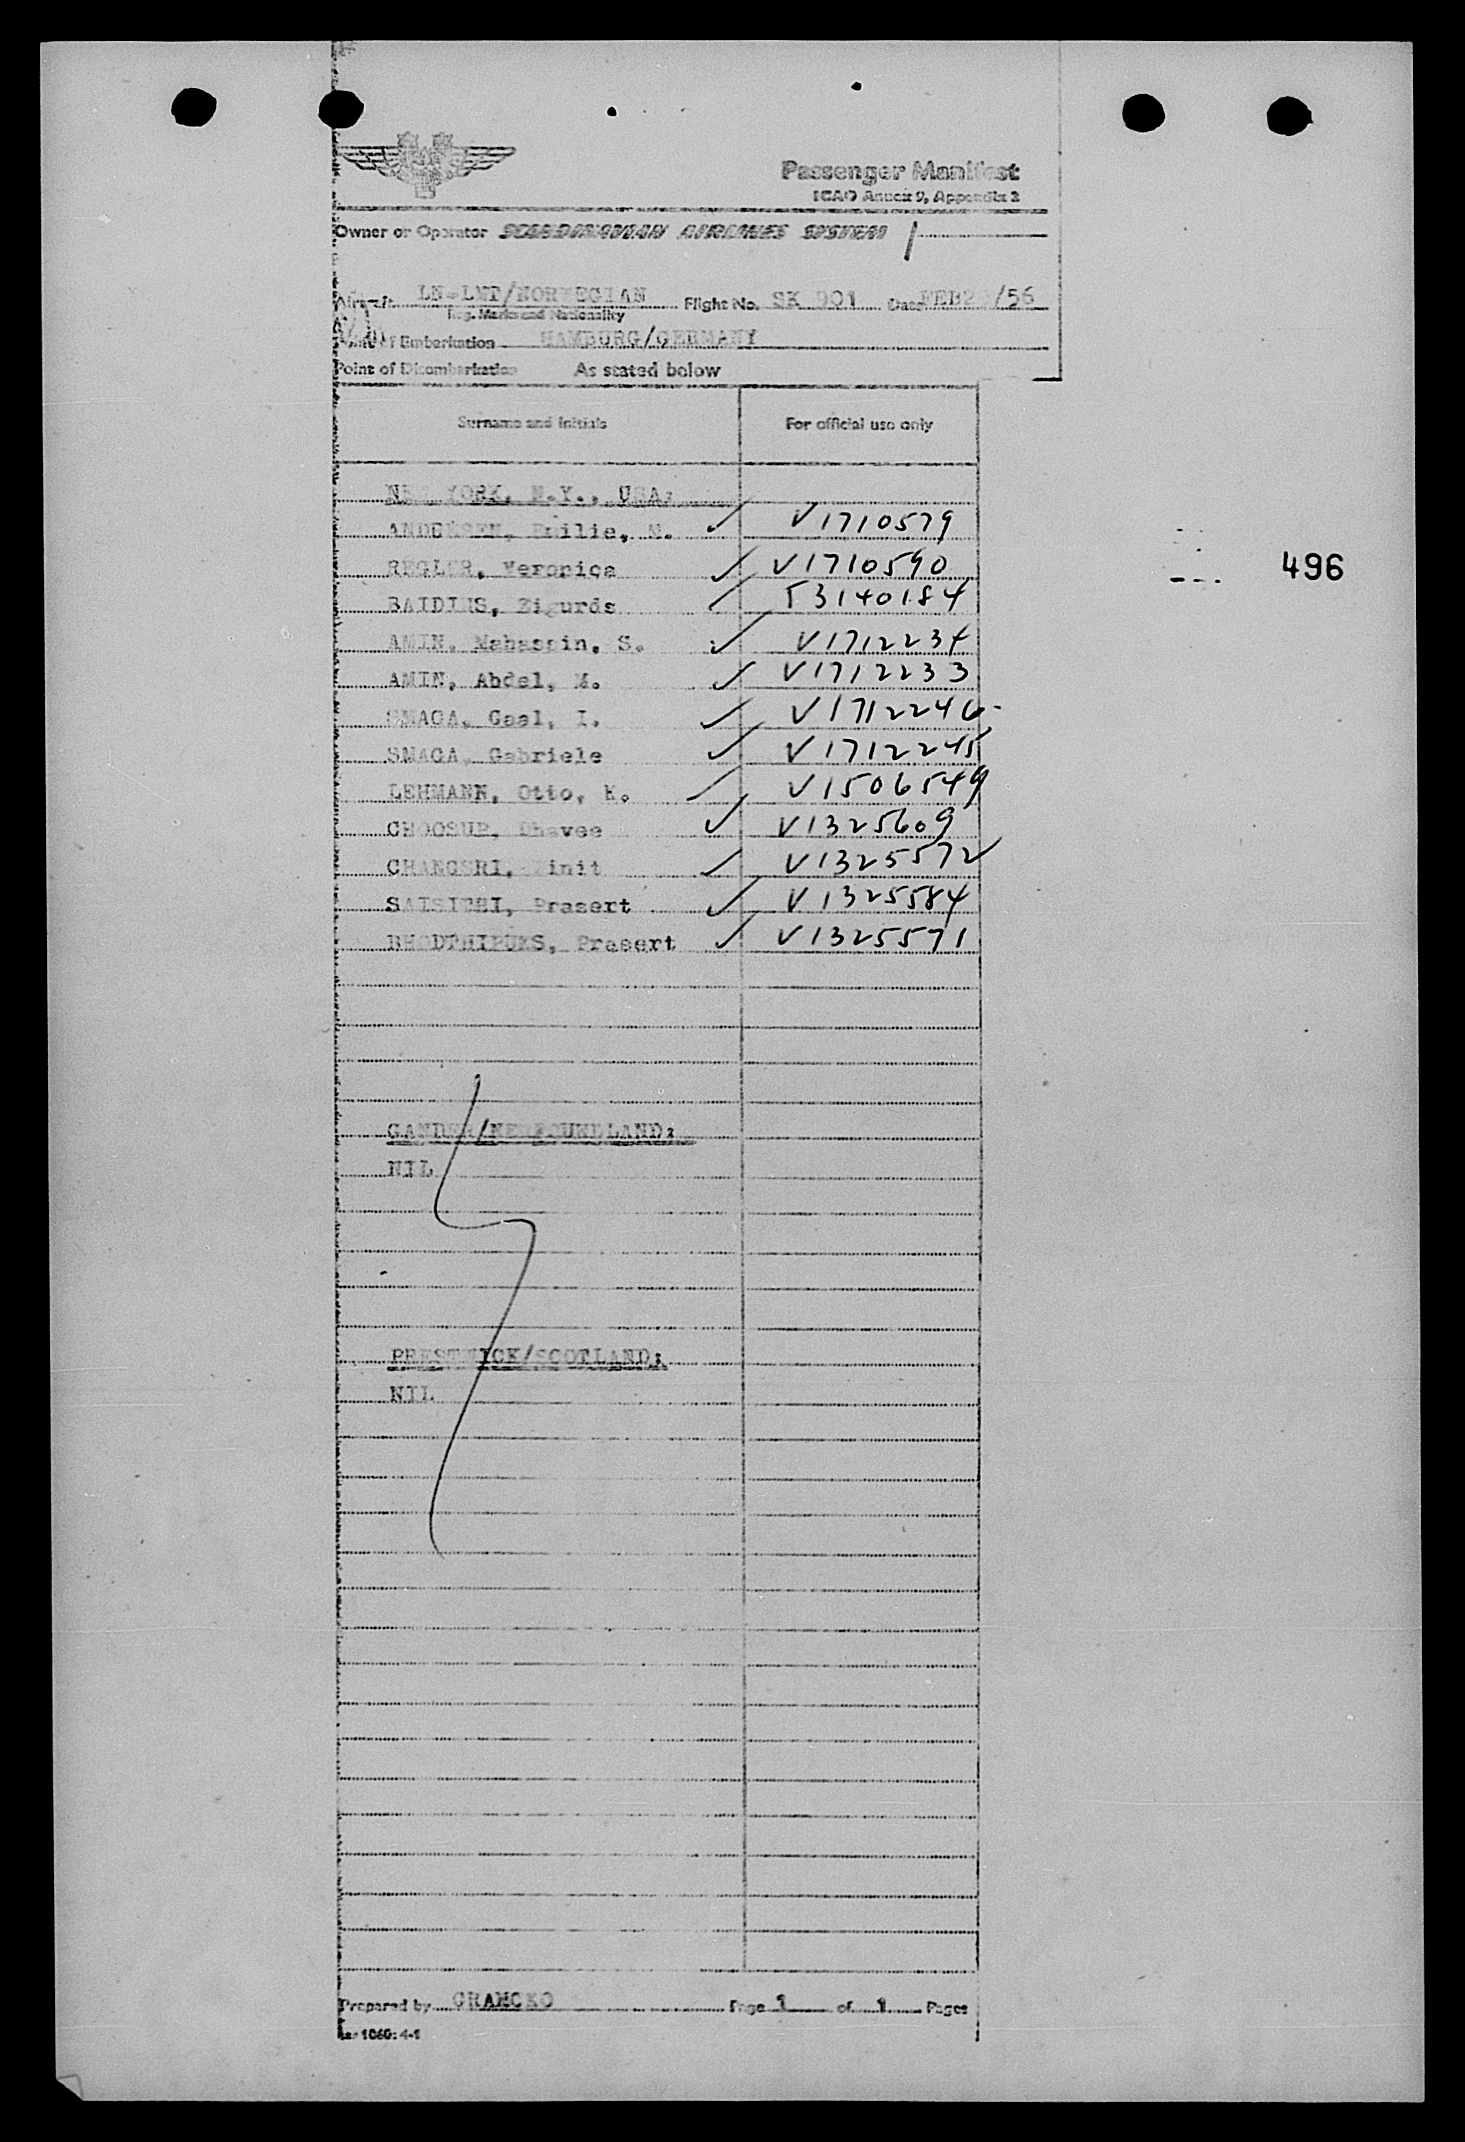 Passenger Manifest
ICAO Annex 9, Appendix 2
Owner or Operator SCANDINAVIAN AIRLINES SYSTEM
Aircraft LN-LMT/NORWEGIAN Flight No. SK 901 Date FEB /56
Reg. Marks and Nationality
Point of Embarkation HAMBURG/GERMANY
Point of Disembarkation As stated below
Surname and Initials For official use only
NEW YORK, N.Y., USA:
ANDERSEN, Emilie, V1710579
REGLER, Veronica V1710590
496
BAIDINS, Zigurds 53140184
AMIN, Mahassin, S. V1712234
AMIN, Abdel, M. V1712233
SMAGA, Gael, I. V1712246
SMAGA, Gabriele V1712245
LEHMANN, Otto, K. V1506549
CHOOSUP, Dhavee V1325609
CHANGSRI, V1325572
Prasert V1325584
Prasert V1325571
GANDER/NEWFOUNDLAND:
NIL
PRESTWICK/SCOTLAND:
NIL
Prepared by Page 1 of 1 Pages
1060: 4-1